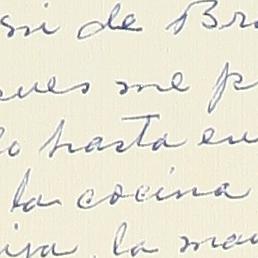 de Br
ues me p
lo hasta en
la cocina
isa, la ma